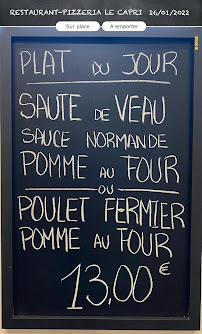 RESTAURANT-PIZZERIA LE CAPRI 26/01/2022
Sur place
A emporter
PLAT DU JOUR
SAUTE DE VEAU
SAUCE NORMANDE
POMME AU FOUR
OU
POULET FERMIER
POMME AU FOUR
13,00€